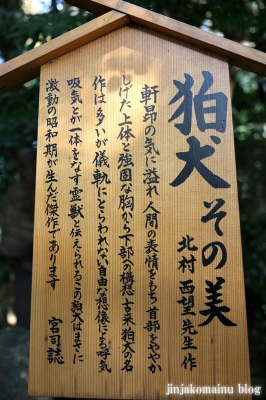 狛犬 その美
北村西望先生作
軒昂の気に溢れ 人間の表情をもち 首部をやや
しげた 上体と強固な胸から下部への構想 古来狛犬の名
作は多いが儀軌にとらわれない自由な想像による呼気
吸気とが一体をなす霊獣と伝えられるこの狛犬はまさに
激動の昭和期が生んだ傑作であります
宮司誌
jinjakomainu blog